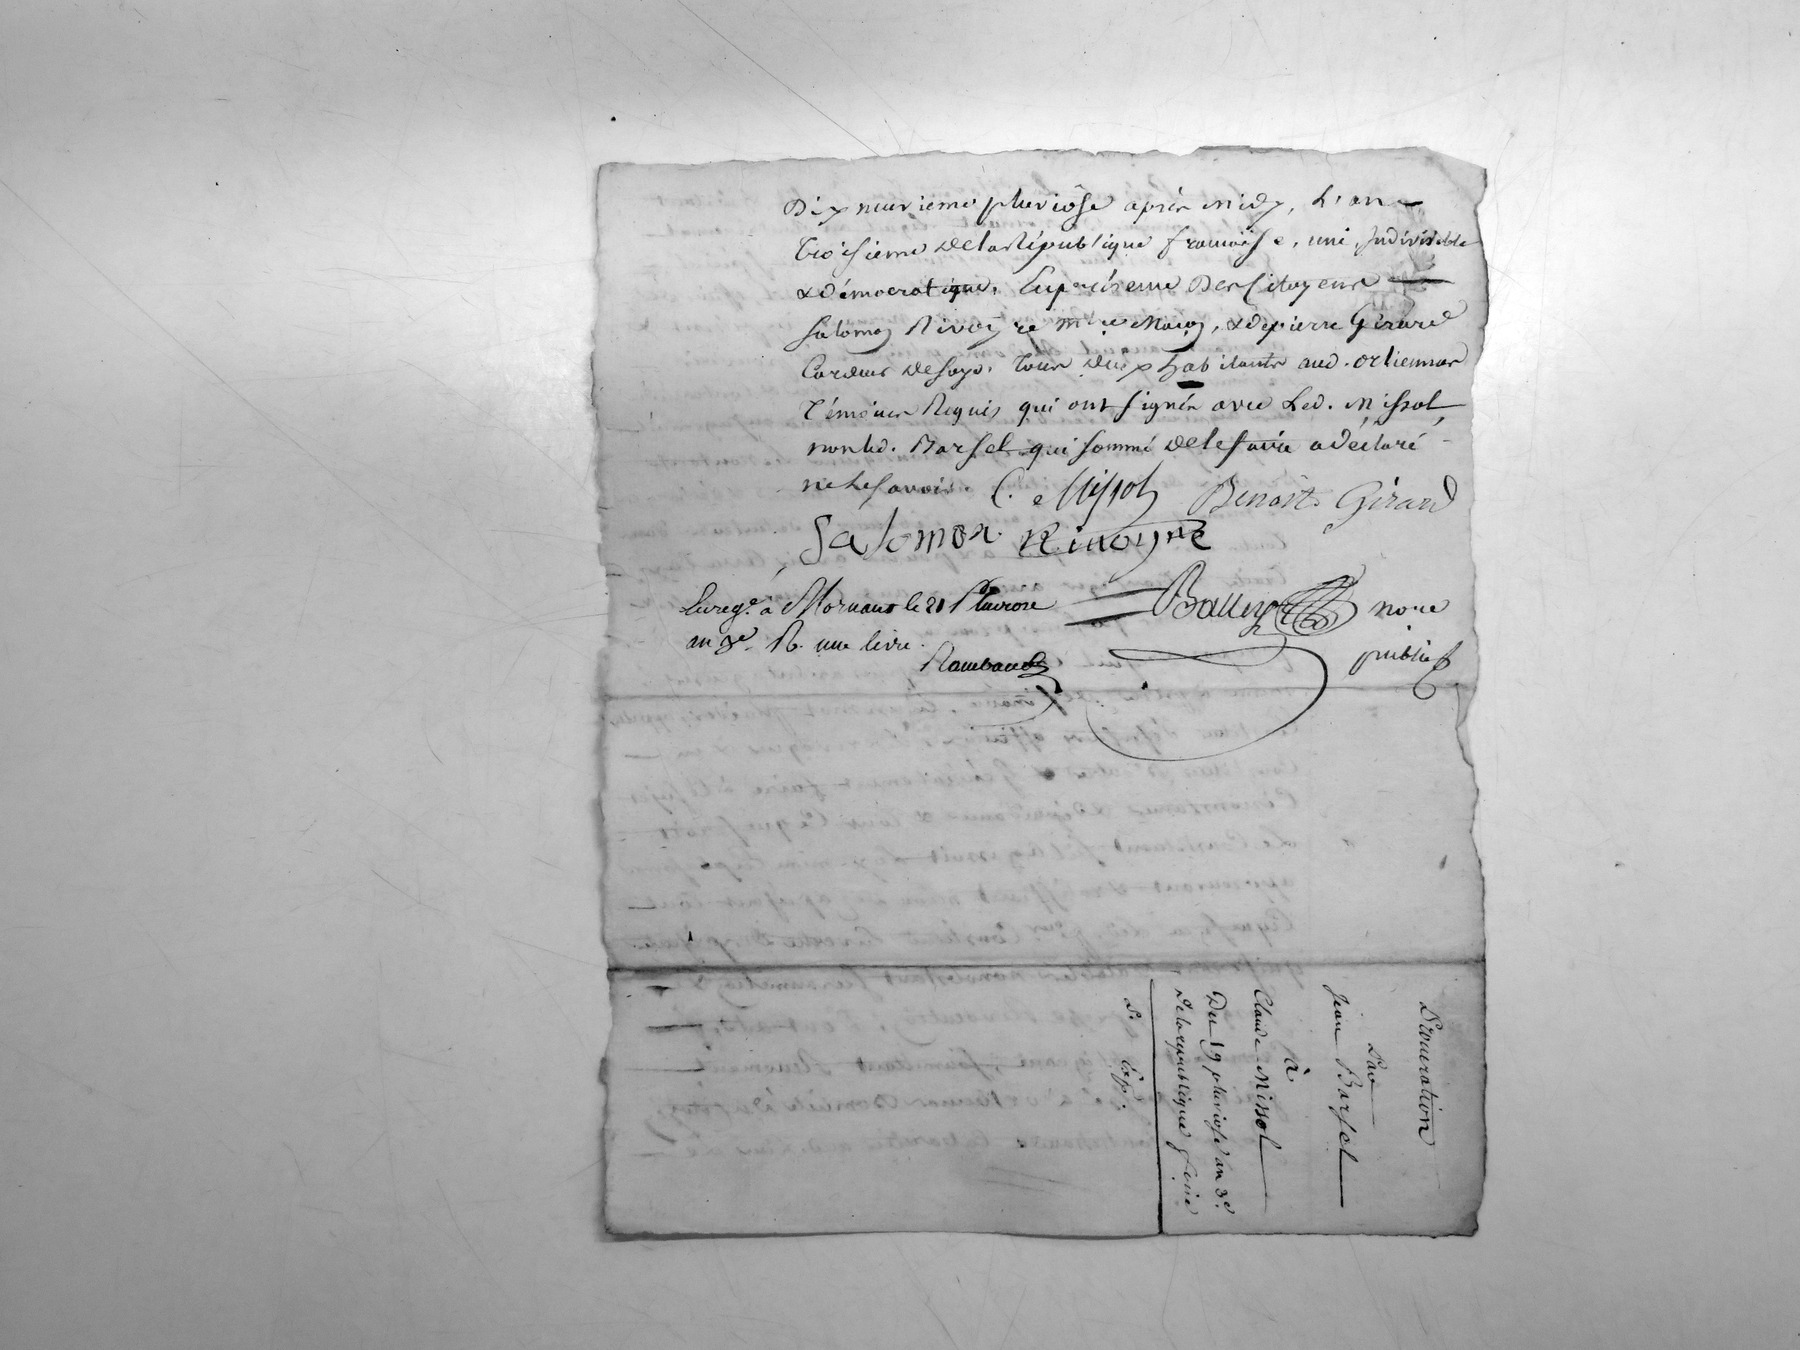 Dix neuvieme pluviôse après midy, L'an
troisieme de la République francoise, une, Indivisible
& Démocratique, En présence Des Citoyens
Salomon Rivoyre m.re Maçon, & de pierre Gérard
Cordeur de soye, tous deux habitants aud. Orlienas
Témoins Requis qui ont signés avec Led. Missol
non led. Barsel qui sommé de le faire a déclaré
ne le savoir. C. Missol Benoit Girard
Salomon Rivoyre
Enreg.é à Mornant le 21 Pluviose
an 3.e R. une livre.
Rambaud
Balley no.re
public
Procuration
Par
Jean Barsel
à
Claude Missol
Du 19 pluviose an 3.e
De la republique f.oise
P. Exp.